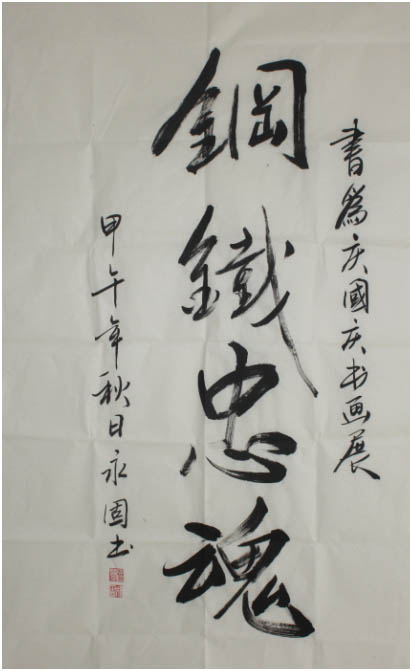 書爲庆國庆书画展
鋼鐵忠魂
甲午年秋日永固书